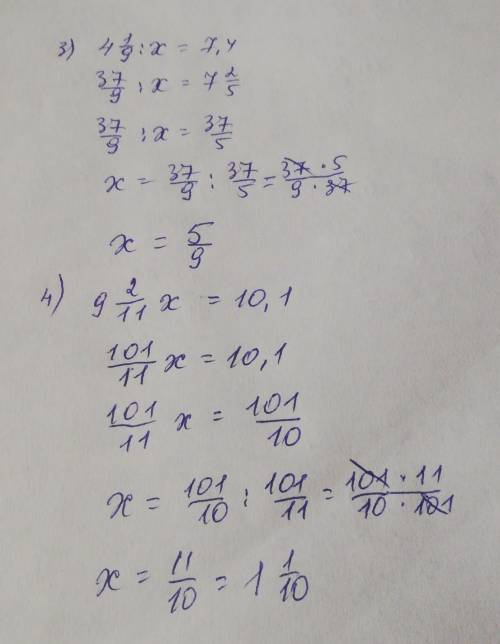 3) 4 1/9 : x = 7,4
37/9 : x = 7 2/5
37/9 : x = 37/5
x = 37/9 : 37/5 = 37·5/9·37
x = 5/9
4) 9 2/11 x = 10,1
101/11 x = 10,1
101/11 x = 101/10
x = 101/10 : 101/11 = 101·11/10·101
x = 11/10 = 1 1/10